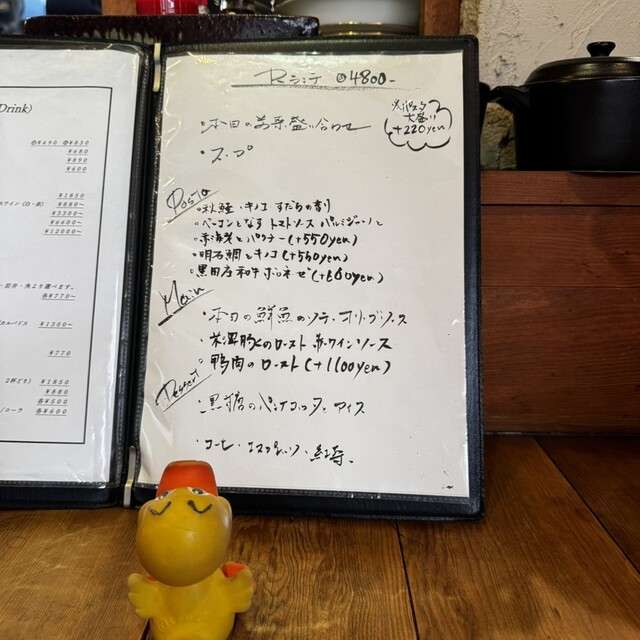 Drink)
¥490 ¥830
¥680
¥890
¥600
¥1850
スワイン (白・赤) ¥3300~
¥6600~
¥12000~
・魚より選べます。
各¥770~
カルバドス ¥1300~
¥770
2杯どり) ¥1650
¥880
各¥500
コーラ 各¥600
Bランチ ¥4800-
※パスタ
大盛り
+220yen
・本日の前菜盛り合わせ
・スープ
Pasta
・秋鮭とキノコ すだちの香り
・ベーコンとなす トマトソース パルミジャーノと
・赤海老とバッター(+550yen)
・明石鯛とキノコ(+550yen)
・黒田庄和牛 ボロネーゼ(+660yen)
Main
・本日の鮮魚のソテー オリーブソース
・黒豚のロースト 赤ワインソース
・鴨肉のロースト(+1100yen)
Dessert
・黒糖のパンナコッタとアイス
・コーヒー・エスプレッソ・紅茶